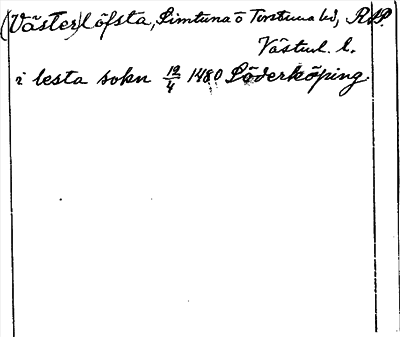 (Väster)löfsta, Simtuna o Torstuna hd, RAP.
Västml. l.
i lesta sokn 12/4 1480 Söderköping